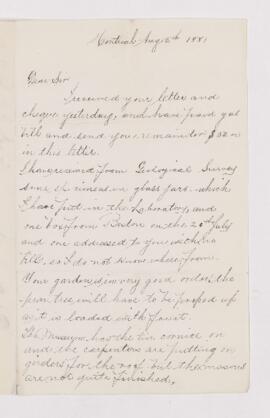 Montreal Aug 5th 1881
Dear Sir
I received your letter and
cheque yesterday, and have paid gas
bill and send you remainder $
in this letter.
I have received from Geological Survey
some specimens in glass jars which
I have put in the Laboratory, and
one box from Boston on the 20th July
and one addressed to you with no
bill, so I do not know where from.
Your garden is in very good order, the
pear tree will have to be propped up
as it is loaded with fruit.
The Museum has the tin cornice on
and the carpenters are putting on
girders for the roof but the masons
are not quite finished.